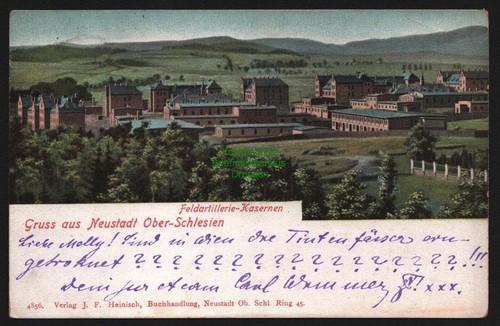 Feldartillerie-Kasernen
Gruss aus Neustadt Ober-Schlesien
Liebe Molly! Sind in dien die Tintenfässer ein-
getrocknet ? ? ? ? ? ? ? ? ? ? ? ? ? ? !!!
Dein Carl xxx.
4856. Verlag J. F. Heinisch, Buchhandlung, Neustadt Ob. Schl. Ring 45.